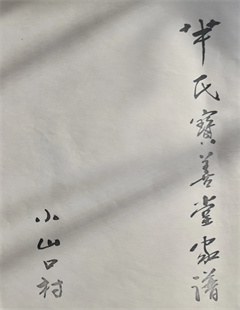 氏寶善堂家譜
小山口村